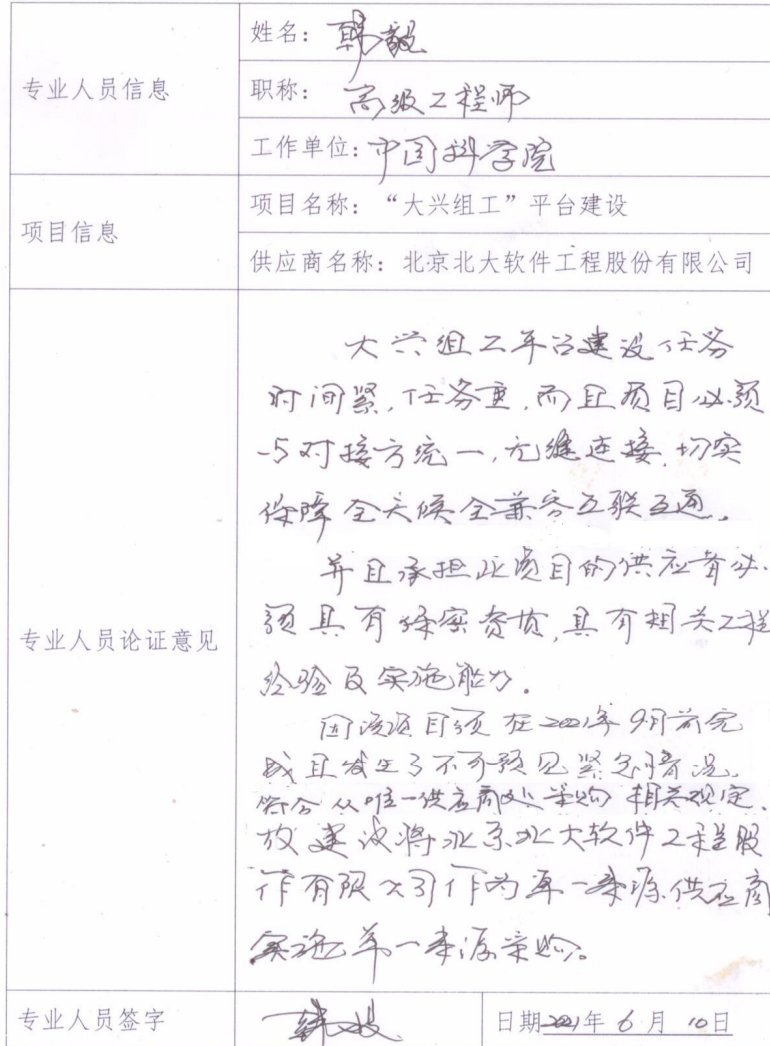 专业人员信息
姓名：韩毅
职称：高级工程师
工作单位：中国科学院
项目信息
项目名称：“大兴组工”平台建设
供应商名称：北京北大软件工程股份有限公司
专业人员论证意见
大兴组工平台建设任务
时间紧，任务重，而且项目必须
与对接方统一，无缝连接，切实
保障全天候全兼容互联互通。
并且承担此项目的供应商必
须具有保密资质，具有相关工程
经验及实施能力。
因该项目须在2021年9月前完
成且发生了不可预见紧急情况。
符合从唯一供应商处采购相关规定，
故建议将北京北大软件工程股
份有限公司作为单一来源供应商
实施单一来源采购。
专业人员签字
韩毅
日期2021年6月10日